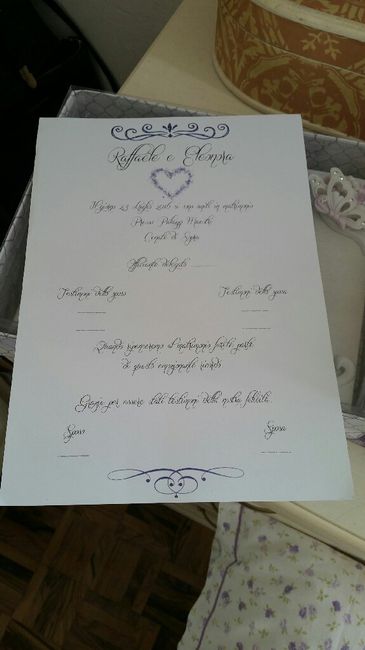 Raffaele e Eleonora
Il giorno 23 Luglio 2016 si sono uniti in matrimonio
Presso Palazzo
Comune di
Officiante delegato ............
Testimoni dello sposo
Testimoni della sposa
Quando ripenseremo al matrimonio farete parte
di questo emozionante ricordo
Grazie per essere stati testimoni della nostra felicità
Sposo
Sposa